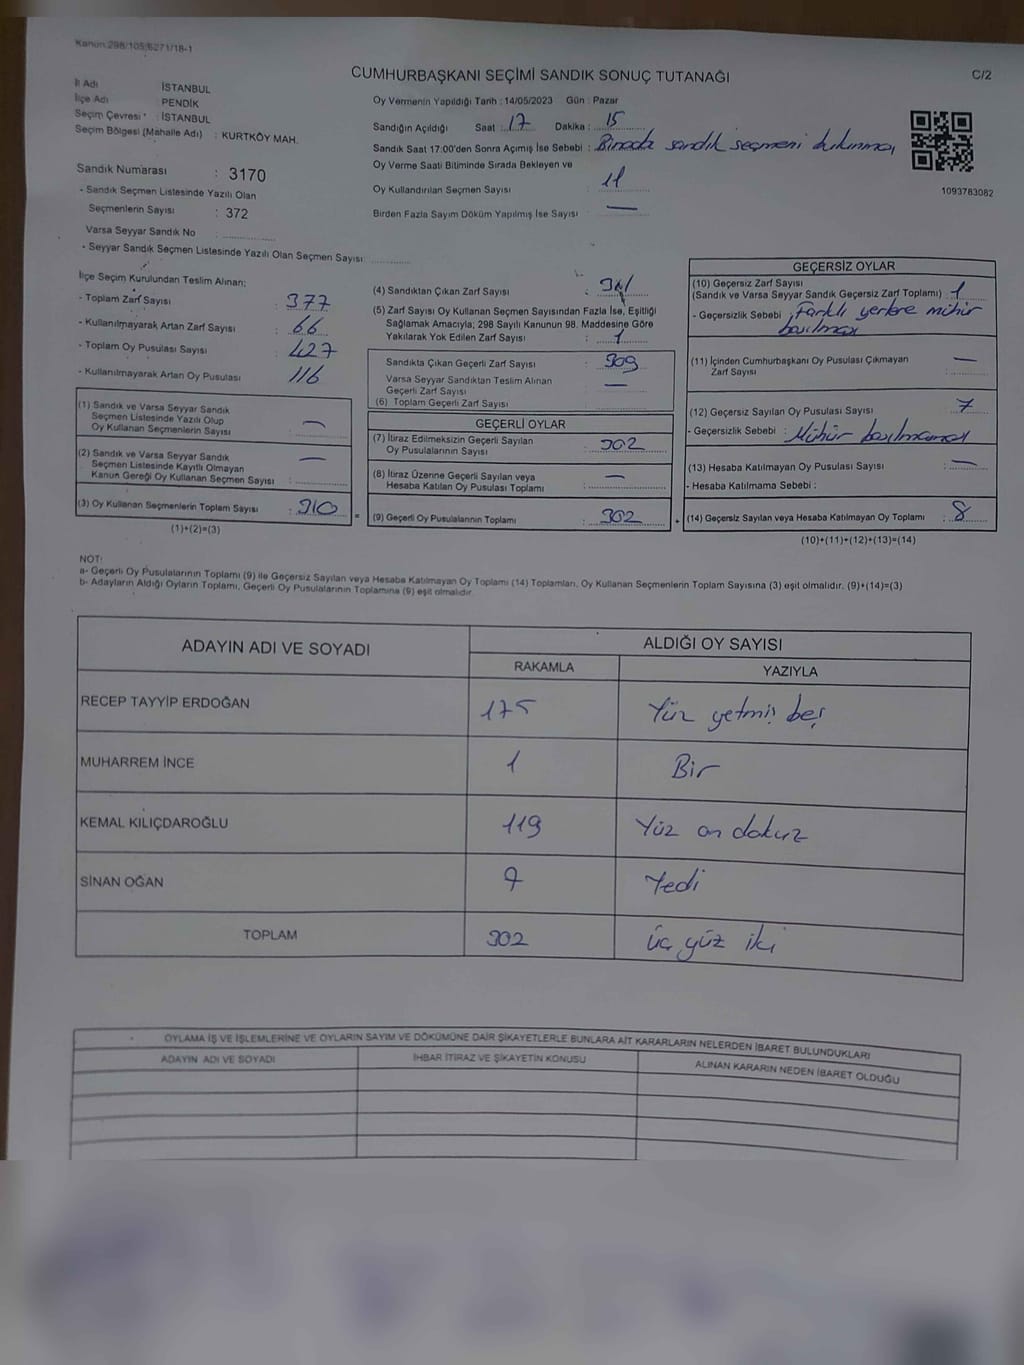 Kanun:298/105;6271/18-1
CUMHURBAŞKANI SEÇİMİ SANDIK SONUÇ TUTANAĞI
C/2
İl Adı : İSTANBUL
İlçe Adı : PENDİK
Seçim Çevresi : İSTANBUL
Seçim Bölgesi (Mahalle Adı) : KURTKÖY MAH.
Sandık Numarası : 3170
- Sandık Seçmen Listesinde Yazılı Olan
Seçmenlerin Sayısı : 372
Varsa Seyyar Sandık No
- Seyyar Sandık Seçmen Listesinde Yazılı Olan Seçmen Sayısı:
Oy Vermenin Yapıldığı Tarih : 14/05/2023 Gün : Pazar
Sandığın Açıldığı Saat : 17 Dakika : 15
Sandık Saat 17:00'den Sonra Açımış İse Sebebi : Binada sandık seçmeni bulunması
Oy Verme Saati Bitiminde Sırada Bekleyen ve
Oy Kullandırılan Seçmen Sayısı : 11
Birden Fazla Sayım Döküm Yapılmış İse Sayısı : —
1093783082
İlçe Seçim Kurulundan Teslim Alınan:
- Toplam Zarf Sayısı : 377
- Kullanılmayarak Artan Zarf Sayısı : 66
- Toplam Oy Pusulası Sayısı : 427
- Kullanılmayarak Artan Oy Pusulası : 116
(1) Sandık ve Varsa Seyyar Sandık
Seçmen Listesinde Yazılı Olup
Oy Kullanan Seçmenlerin Sayısı : —
(2) Sandık ve Varsa Seyyar Sandık
Seçmen Listesinde Kayıtlı Olmayan
Kanun Gereği Oy Kullanan Seçmen Sayısı : —
(3) Oy Kullanan Seçmenlerin Toplam Sayısı : 310
(1)+(2)=(3)
(4) Sandıktan Çıkan Zarf Sayısı : 311
(5) Zarf Sayısı Oy Kullanan Seçmen Sayısından Fazla İse, Eşitliği
Sağlamak Amacıyla; 298 Sayılı Kanunun 98. Maddesine Göre
Yakılarak Yok Edilen Zarf Sayısı : 1
Sandıkta Çıkan Geçerli Zarf Sayısı : 309
Varsa Seyyar Sandıktan Teslim Alınan
Geçerli Zarf Sayısı : —
(6) Toplam Geçerli Zarf Sayısı
GEÇERLİ OYLAR
(7) İtiraz Edilmeksizin Geçerli Sayılan
Oy Pusulalarının Sayısı : 302
(8) İtiraz Üzerine Geçerli Sayılan veya
Hesaba Katılan Oy Pusulası Toplamı : —
= (9) Geçerli Oy Pusulalarının Toplamı : 302
GEÇERSİZ OYLAR
(10) Geçersiz Zarf Sayısı
(Sandık ve Varsa Seyyar Sandık Geçersiz Zarf Toplamı) : 1
- Geçersizlik Sebebi : Farklı yerlere mühür
basılması
(11) İçinden Cumhurbaşkanı Oy Pusulası Çıkmayan
Zarf Sayısı : —
(12) Geçersiz Sayılan Oy Pusulası Sayısı : 7
- Geçersizlik Sebebi : Mühür basılmaması
(13) Hesaba Katılmayan Oy Pusulası Sayısı : —
- Hesaba Katılmama Sebebi :
+ (14) Geçersiz Sayılan veya Hesaba Katılmayan Oy Toplamı : 8
(10)+(11)+(12)+(13)=(14)
NOT:
a- Geçerli Oy Pusulalarının Toplamı (9) ile Geçersiz Sayılan veya Hesaba Katılmayan Oy Toplamı (14) Toplamları, Oy Kullanan Seçmenlerin Toplam Sayısına (3) eşit olmalıdır. (9)+(14)=(3)
b- Adayların Aldığı Oyların Toplamı, Geçerli Oy Pusulalarının Toplamına (9) eşit olmalıdır.
ADAYIN ADI VE SOYADI ALDIĞI OY SAYISI
RAKAMLA YAZIYLA
RECEP TAYYİP ERDOĞAN 175 Yüz yetmiş beş
MUHARREM İNCE 1 Bir
KEMAL KILIÇDAROĞLU 119 Yüz on dokuz
SİNAN OĞAN 7 Yedi
TOPLAM 302 üç yüz iki
OYLAMA İŞ VE İŞLEMLERİNE VE OYLARIN SAYIM VE DÖKÜMÜNE DAİR ŞİKAYETLERLE BUNLARA AİT KARARLARIN NELERDEN İBARET BULUNDUKLARI
ADAYIN ADI VE SOYADI İHBAR İTİRAZ VE ŞİKAYETİN KONUSU ALINAN KARARIN NEDEN İBARET OLDUĞU